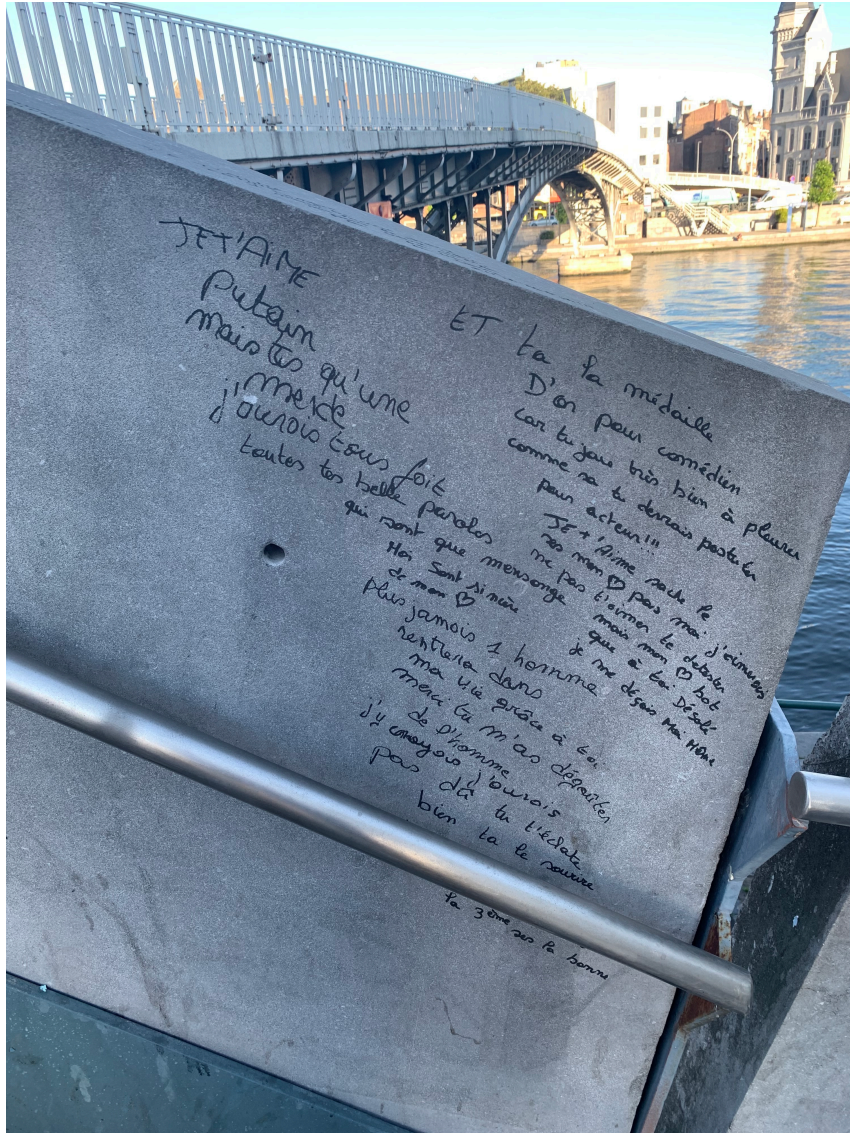 JE T'AiME
putain
mais t'es qu'une
merde
j'aurois tous fait
toutes tes belle paroles
qui sont que mensonge
Moi Sont sincère
de mon ♡
plus jamois 1 homme
rentrera dans
ma vie grâce à toi
merci tu m'as dégoûter
de l'homme
j'y croyois j'aurois
pas dû tu t'éclate
bien ta le sourire
la 3ème ses la bonne
ET ta la médaille
D'or pour comédien
car tu joue très bien à pleurer
comme sa tu devrais postuler
pour acteur!!!
JE t'Aime sache le
ses mon ♡ pas moi j'aimerais
ne pas t'aimer te detester
mais mon ♡ bat
que à toi Désolé
je me déçois Moi Même